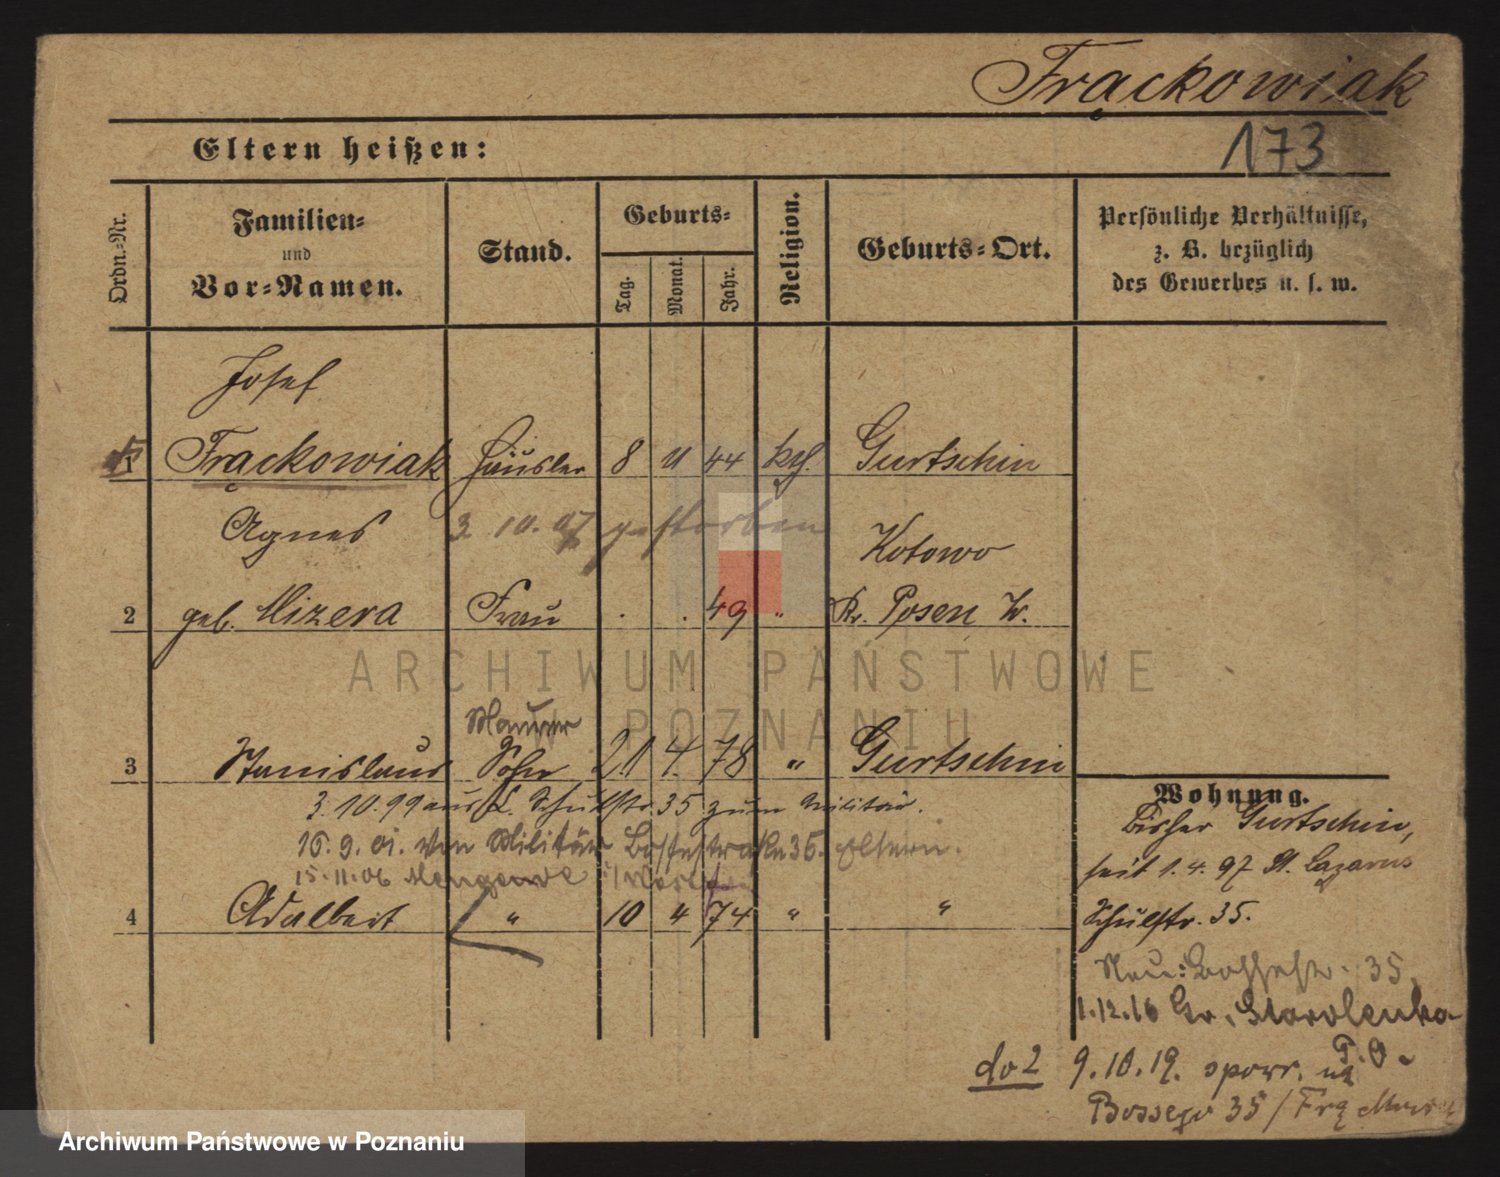 Frąckowiak
Eltern heißen:
173
Ordn.-Nr.
Familien-
und
Vor-Namen.
Stand.
Geburts-
Tag.
Monat.
Jahr.
Religion.
Geburts-Ort.
Persönliche Verhältnisse,
z. B. bezüglich
des Gewerbes u. s. w.
Josef
1 Frąckowiak Häusler 8 11 44 kth. Gurtschin
Agnes 3. 10. 07 gestorben Kotowo
2 geb. Mizera Frau . . 49 " Kr. Posen W.
ARCHIWUM PAŃSTWOWE
W POZNANIU
Maurer
3 Stanislaus Sohn 21 4. 78 " Gurtschin
3. 10. 99 aus L. Schulstr. 35 zum Militär.
16. 9. 01. von Militär 35. Eltern.
15. 11. 06
4 Adalbert " 10 4 74 " "
Wohnung.
bisher Gurtschin,
seit 1. 4. 97 St. Lazarus
Schulstr. 35.
Neu: Bossestr. 35.
1. 12. 16 Gr. Starolenka
do 2 9. 10. 19. spowr. na
Bossego 35 /
Archiwum Państwowe w Poznaniu